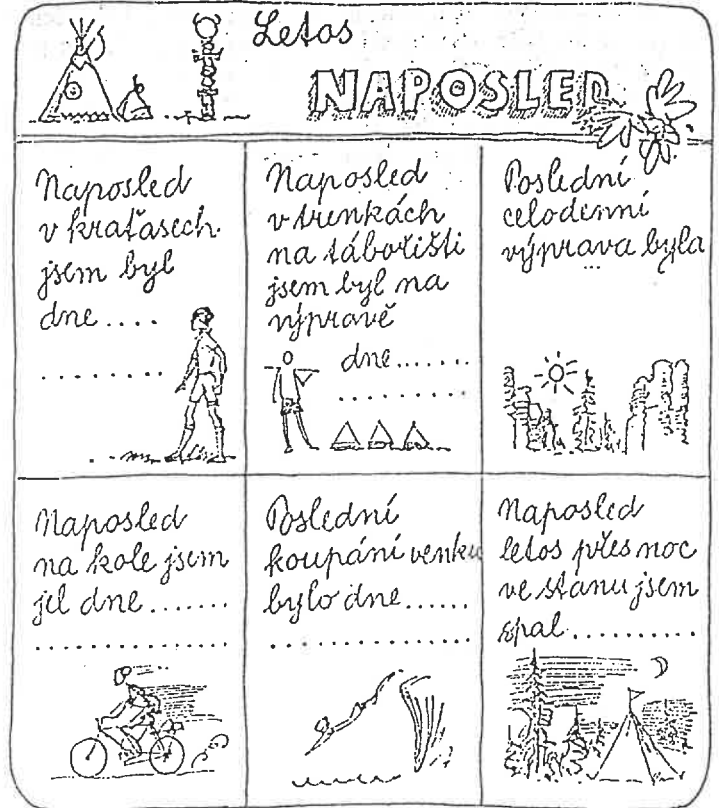 Letos
NAPOSLED
Naposled
v kraťasech
jsem byl
dne....
........
Naposled
v trenkách
na tábořišti
jsem byl na
výpravě
dne.......
.........
Poslední
celodenní
výprava byla
...
Naposled
na kole jsem
jel dne.......
...............
Poslední
koupání venku
bylo dne......
...............
Naposled
letos přes noc
ve stanu jsem
spal..........